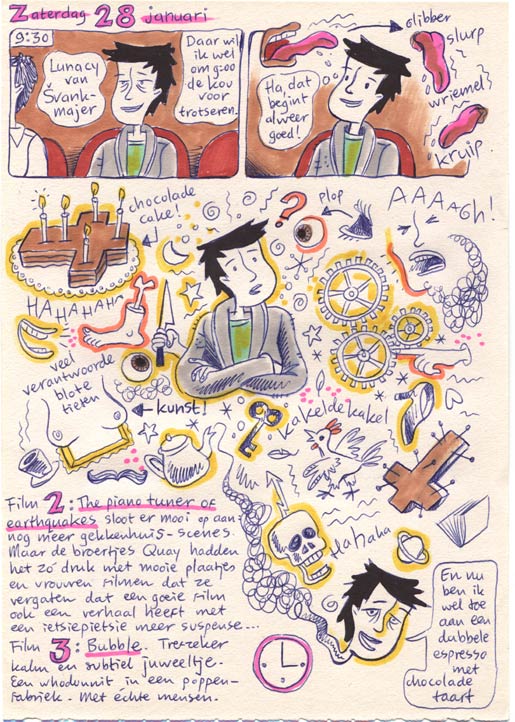 Zaterdag 28 januari
9:30
Lunacy
van
Švank-
majer
Daar wil
ik wel
om 9:00
de kou
voor
trotseren.
Ha, dat
begint
alweer
goed!
glibber
slurp
wriemel
kruip
chocolade
cake!
plop
AAAAGH!
HAHAHAHA
veel
verantwoorde
blote
tieten
kunst!
kakeldekakel
Hahaha
Film 2: The piano tuner of
earthquakes sloot er mooi op aan:
nog meer gekkenhuis-scenes.
Maar de broertjes Quay hadden
het zó druk met mooie plaatjes
en vrouwen filmen dat ze
vergaten dat een goeie film
ook een verhaal heeft met
een ietsiepietsie meer suspense...
Film 3: Bubble. Trefzeker
kalm en subtiel juweeltje.
Een whodunnit in een poppen-
fabriek. Met échte mensen.
En nu
ben ik
wel toe
aan een
dubbele
espresso
met
chocolade
taart